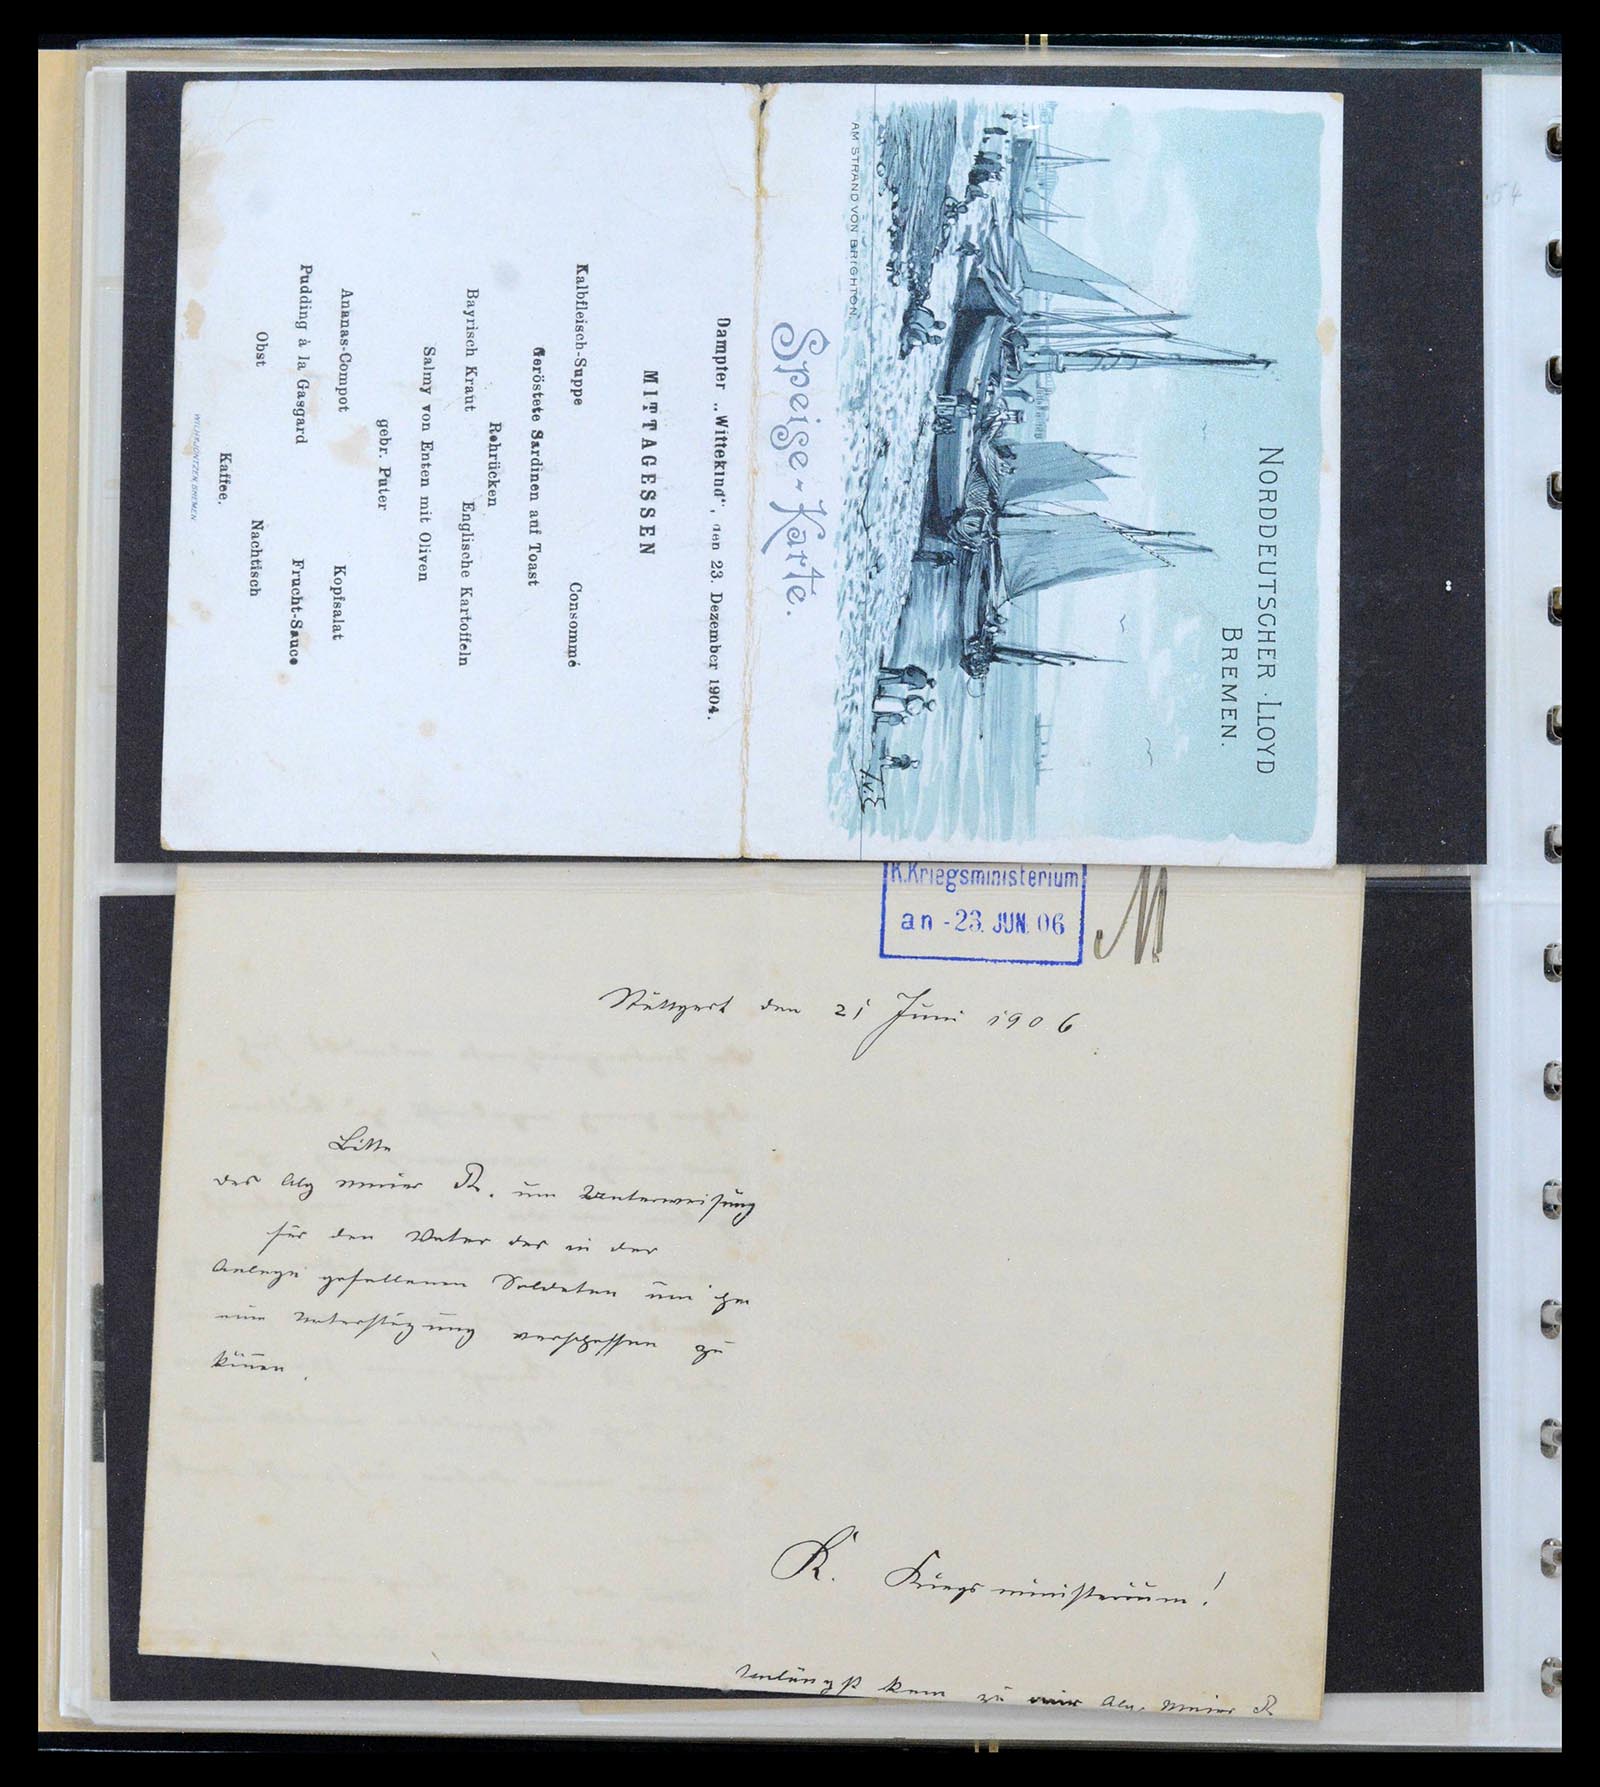 NORDDEUTSCHER · LLOYD
BREMEN.
AM STRAND VON BRIGHTON.
Speise-Karte.
Dampfer „Wittekind“, den 23. Dezember 1904.
MITTAGESSEN
Kalbfleisch-Suppe Consommé
Geröstete Sardinen auf Toast
Rehrücken
Bayrisch Kraut Englische Kartoffeln
Salmy von Enten mit Oliven
gebr. Puter
Ananas-Compot Kopfsalat
Pudding à la Gasgard Frucht-Sauce
Obst Nachtisch
Kaffee.
WILH. JÖNTZEN, BREMEN
54
K. Kriegsministerium
an - 23. JUN. 06
M
Stuttgart den 21 Juni 1906
Bitte
des Abg Maier R. um Unterweisung
für den Vater des in der
gefallenen Soldaten um ihm
eine Unterstüzung verschaffen zu
können.
K. Kriegsministerium!
Unlängst kam zu mir Abg. Maier R